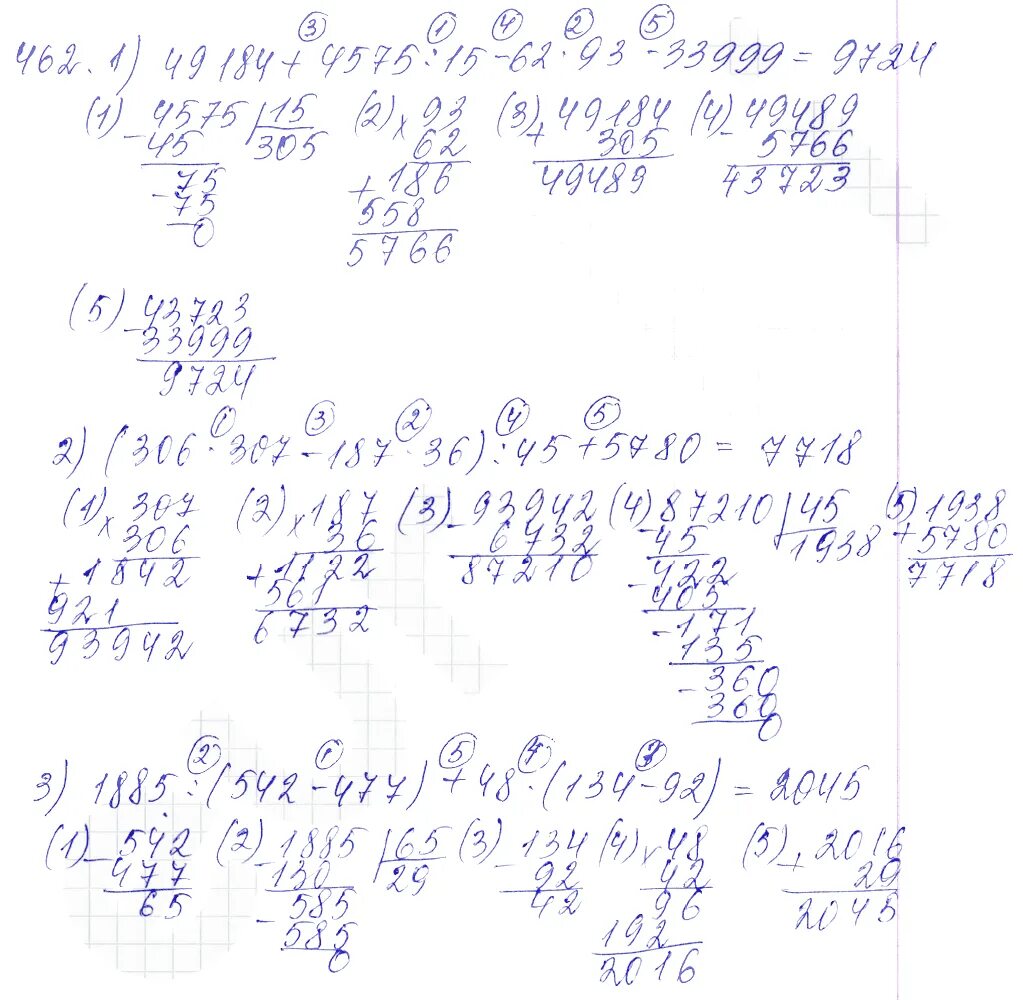 ③ ① ④ ② ⑤
462. 1) 49184 + 4575 : 15 - 62 · 93 - 33999 = 9724
(1) - 4575 | 15 (2) x 93 (3) + 49184 (4) - 49489
45 305 62 305 5766
- 75 + 186 49489 43723
75 558
0 5766
(5) - 43723
33999
9724
① ③ ② ④ ⑤
2) (306 · 307 - 187 · 36) : 45 + 5780 = 7718
(1) x 307 (2) x 187 (3) - 93942 (4) - 87210 | 45 (5) + 1938
306 36 6732 45 1938 5780
+ 1842 + 1122 87210 - 422 7718
921 561 405
93942 6732 - 171
135
- 360
360
0
② ① ⑤ ④
3) 1885 : (542 - 477) + 48 · (134 - 92) = 2045
(1) - 542 (2) - 1885 | 65 (3) - 134 (4) x 48 (5) + 2016
477 130 29 92 42 29
65 - 585 42 96 2045
585 192
0 2016